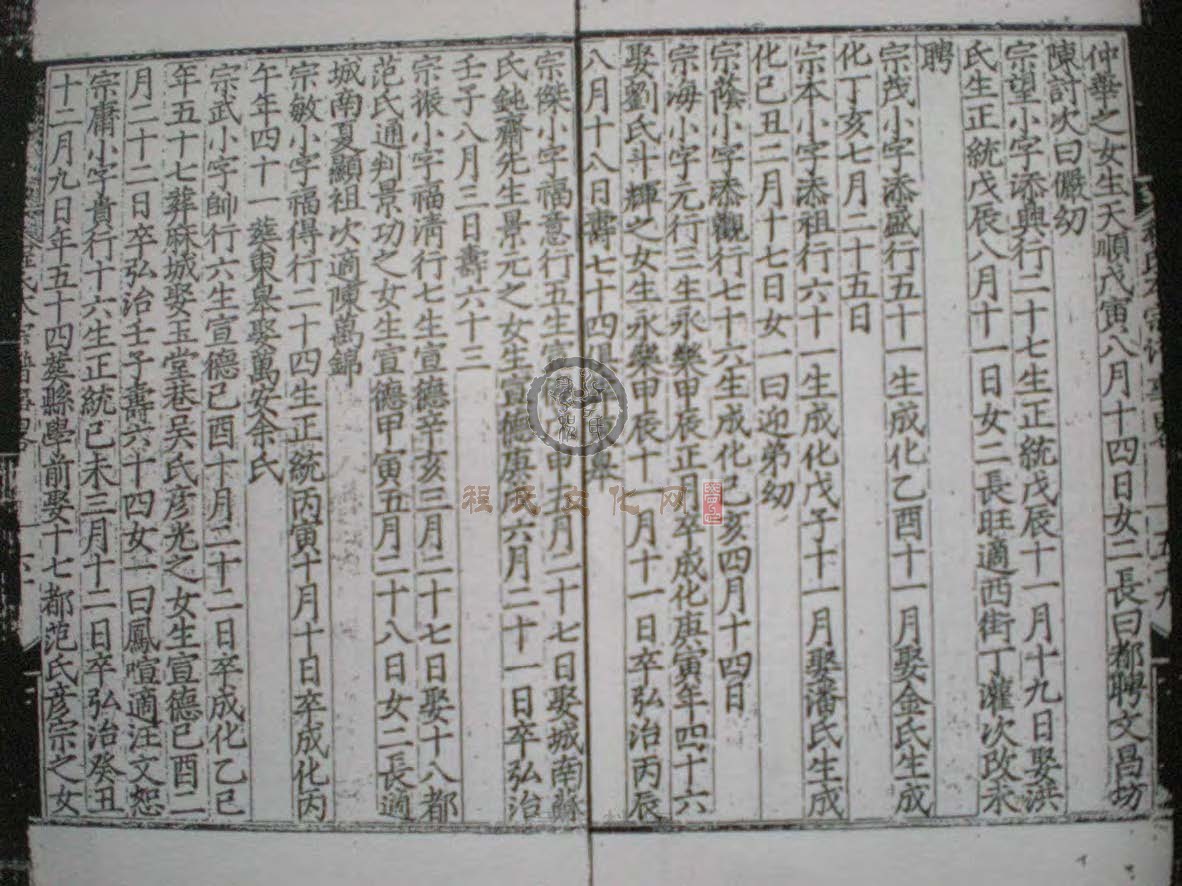 仲華之女生天順戊寅八月十四日女二長曰都聘文昌坊
陳討次曰儼幼
宗望小字添興行二十七生正統戊辰十一月十九日娶洪
氏生正統戊辰八月十一日女二長旺適西街丁灌次改未
聘
宗茂小字添盛行五十一生成化乙酉十一月娶金氏生成
化丁亥七月二十五日
宗本小字添祖行六十一生成化戊子十一月娶潘氏生成
化己丑二月十七日女一曰迎弟幼
宗蔭小字添觀行七十六生成化己亥四月十四日
宗海小字元行三生永樂甲辰正月卒成化庚寅年四十六
娶劉氏斗輝之女生永樂甲辰十一月十一日卒弘治丙辰
八月十八日壽七十四
宗傑小字福意行五生宣 申五月二十七日娶城南蘇
氏鈍齋先生景元之女生宣德庚戌六月二十一日卒弘治
壬子八月三日壽六十三
宗振小字福清行七生宣德辛亥三月二十七日娶十八都
范氏通判景功之女生宣德甲寅五月二十八日女二長適
城南夏顯祖次適陳萬錦
宗敏小字福得行二十四生正統丙寅十月十日卒成化丙
午年四十一葬東臯娶萬安余氏
宗武小字帥行六生宣德己酉十月二十二日卒成化乙巳
年五十七葬麻城娶玉堂巷吳氏彦光之女生宣德己酉二
月二十二日卒弘治壬子壽六十四女一曰鳳喧適汪文恕
宗庸小字貴行十六生正統己未三月十二日卒弘治癸丑
十二月九日年五十四葬縣學前娶十七都范氏彦宗之女
程氏文化网